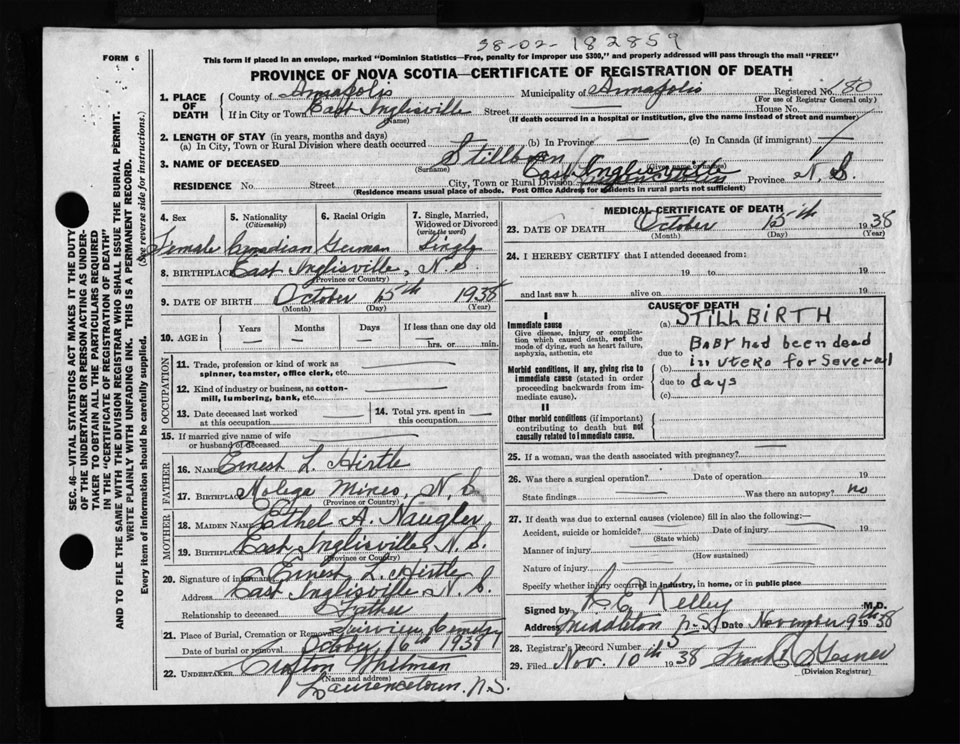 38-02-182859
FORM 6
This form if placed in an envelope, marked "Dominion Statistics—Free, penalty for improper use $300," and properly addressed will pass through the mail "FREE"
PROVINCE OF NOVA SCOTIA—CERTIFICATE OF REGISTRATION OF DEATH
SEC. 46—VITAL STATISTICS ACT MAKES IT THE DUTY
OF THE UNDERTAKER OR PERSON ACTING AS UNDER-
TAKER TO OBTAIN ALL THE PARTICULARS REQUIRED
IN THE "CERTIFICATE OF REGISTRATION OF DEATH"
AND TO FILE THE SAME WITH THE DIVISION REGISTRAR WHO SHALL ISSUE THE BURIAL PERMIT.
WRITE PLAINLY WITH UNFADING INK. THIS IS A PERMANENT RECORD.
Every item of information should be carefully supplied. (See reverse side for instructions.)
1. PLACE OF DEATH
County of Annapolis Municipality of Annapolis Registered No. 180
(For use of Registrar General only)
If in City or Town East Inglisville Street House No.
(Name) (If death occurred in a hospital or institution, give the name instead of street and number)
2. LENGTH OF STAY (in years, months and days)
(a) In City, Town or Rural Division where death occurred (b) In Province (c) In Canada (if immigrant)
3. NAME OF DECEASED Stillborn
(Surname) (Given name or names)
RESIDENCE No. Street City, Town or Rural Division East Inglisville Province N. S.
(Residence means usual place of abode. Post Office Address for residents in rural parts not sufficient)
4. Sex Female
5. Nationality (Citizenship) Canadian
6. Racial Origin German
7. Single, Married, Widowed or Divorced (write the word) Single
8. BIRTHPLACE East Inglisville, N. S.
(Province or Country)
9. DATE OF BIRTH October 15th 1938
(Month) (Day) (Year)
10. AGE in Years Months Days If less than one day
hrs. or min.
OCCUPATION
11. Trade, profession or kind of work as spinner, teamster, office clerk, etc.
12. Kind of industry or business, as cotton-mill, lumbering, bank, etc.
13. Date deceased last worked at this occupation
14. Total yrs. spent in this occupation
15. If married give name of wife or husband of deceased
FATHER
16. NAME Ernest L. Hirtle
17. BIRTHPLACE Molega Mines, N. S.
(Province or Country)
MOTHER
18. MAIDEN NAME Ethel A. Naugler
19. BIRTHPLACE East Inglisville, N. S.
(Province or Country)
20. Signature of informant Ernest L. Hirtle
Address East Inglisville, N. S.
Relationship to deceased Father
21. Place of Burial, Cremation or Removal Fairview Cemetery
Date of burial or removal October 16th 1938
22. UNDERTAKER Whitman
(Name and address)
Lawrencetown, N.S.
MEDICAL CERTIFICATE OF DEATH
23. DATE OF DEATH October 15th 1938
(Month) (Day) (Year)
24. I HEREBY CERTIFY that I attended deceased from:
19 to 19
and last saw h alive on 19
CAUSE OF DEATH
I
Immediate cause
Give disease, injury, or complication which caused death, not the mode of dying, such as heart failure, asphyxia, asthenia, etc
Morbid conditions, if any, giving rise to immediate cause (stated in order proceeding backwards from immediate cause).
II
Other morbid conditions (if important) contributing to death but not causally related to immediate cause.
(a) STILLBIRTH
due to BABY had been dead
(b) in utero for several
due to days
(c)
25. If a woman, was the death associated with pregnancy?
26. Was there a surgical operation? Date of operation 19
State findings Was there an autopsy? no
27. If death was due to external causes (violence) fill in also the following:
Accident, suicide or homicide? Date of injury 19
(State which)
Manner of injury
(How sustained)
Nature of injury
Specify whether injury occurred in industry, in home, or in public place
Signed by Kelley M.D.
Address Middleton N-S Date November 9th 1938
28. Registrar's Record Number 5
29. Filed Nov. 10th 1938
(Division Registrar)